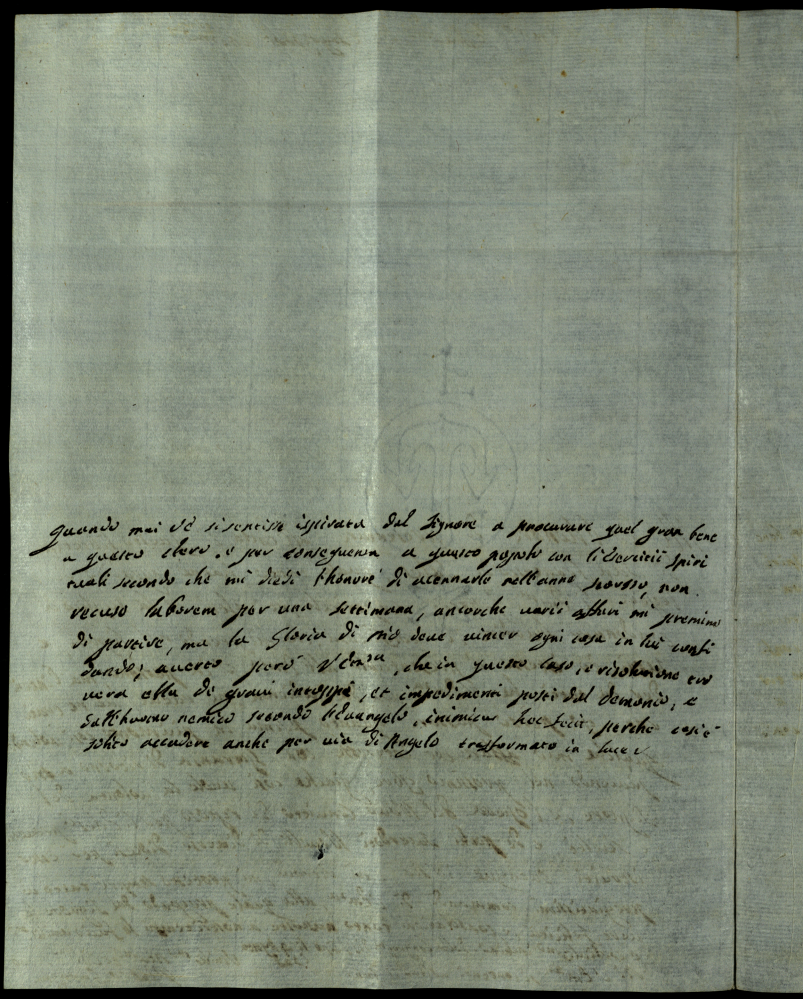 Quando mai V.S. si sentisse ispirata dal Signore a procurare quel gran bene
a questo clero, e per conseguenza a questo popolo con li Esercitii spiri
tuali secondo che mi diedi l'honore di accennarle nell'anno scorso, non
recuso laborem per una settimana, ancorche varii affari mi premino
di partire, ma la Gloria di Dio deve vincer ogni cosa in lui confi
dando; averto però, che in questo caso, e risolutione tro
verà ella de gravi intoppi, et impedimenti posti dal demonio, e
dall'huomo nemico secondo l'Evangelo, inimicus hoc fecit, perche così è
solito accadere anche per via di Angelo trasformato in luce